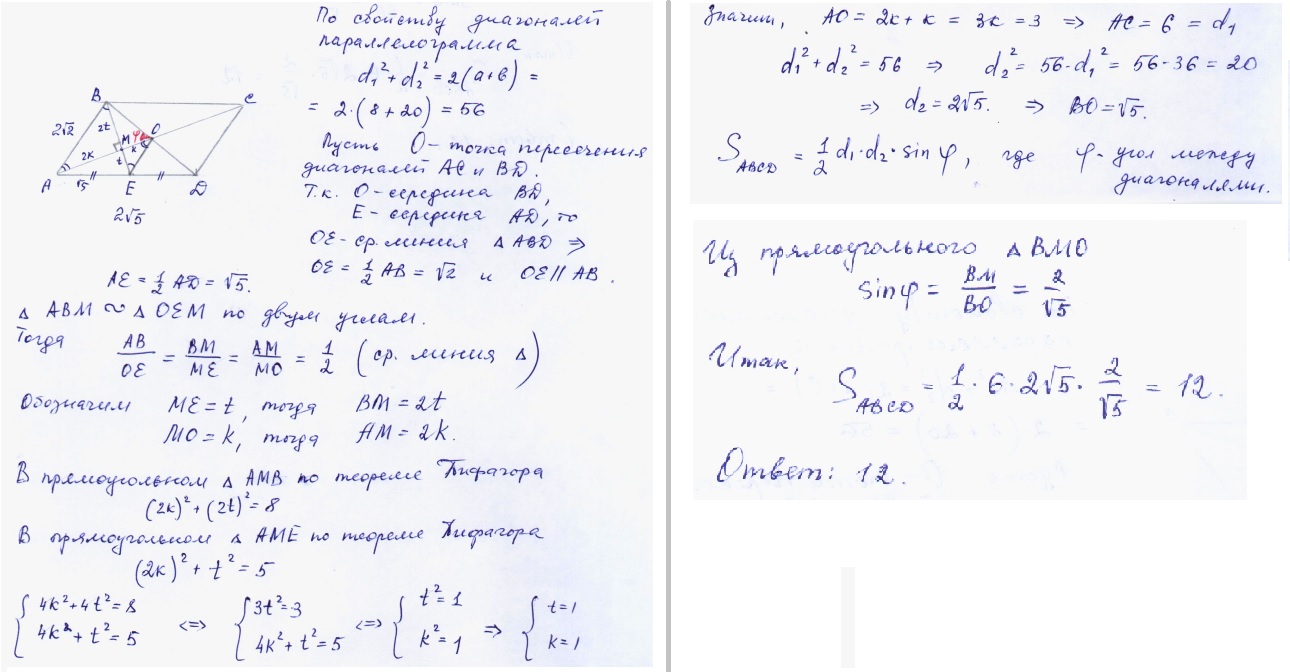 По свойству диагоналей
параллелограмма
d₁² + d₂² = 2(a+b) =
= 2·(8+20) = 56
Пусть O - точка пересечения
диагоналей AC и BD.
Т.к. O - середина BD,
E - середина AD, то
OE - ср. линия △ ABD ⇒
OE = 1/2 AB = √2 и OE ∥ AB.
B
C
2√2
2t
M
φ
O
2k
t
k
A
√5
E
D
2√5
AE = 1/2 AD = √5.
△ ABM ∾ △ OEM по двум углам.
Тогда AB/OE = BM/ME = AM/MO = 1/2 (ср. линия △)
Обозначим ME = t, тогда BM = 2t
MO = k, тогда AM = 2k.
В прямоугольном △ AMB по теореме Пифагора
(2k)² + (2t)² = 8
В прямоугольном △ AME по теореме Пифагора
(2k)² + t² = 5
{ 4k² + 4t² = 8 <=> { 3t² = 3 <=> { t² = 1 ⇒ { t = 1
4k² + t² = 5 4k² + t² = 5 k² = 1 k = 1
Значит, AO = 2k + k = 3k = 3 ⇒ AC = 6 = d₁
d₁² + d₂² = 56 ⇒ d₂² = 56 - d₁² = 56 - 36 = 20
⇒ d₂ = 2√5. ⇒ BO = √5.
S_ABCD = 1/2 d₁·d₂·sin φ, где φ - угол между
диагоналями.
Из прямоугольного △ BMO
sin φ = BM/BO = 2/√5
Итак,
S_ABCD = 1/2 · 6 · 2√5 · 2/√5 = 12.
Ответ: 12.